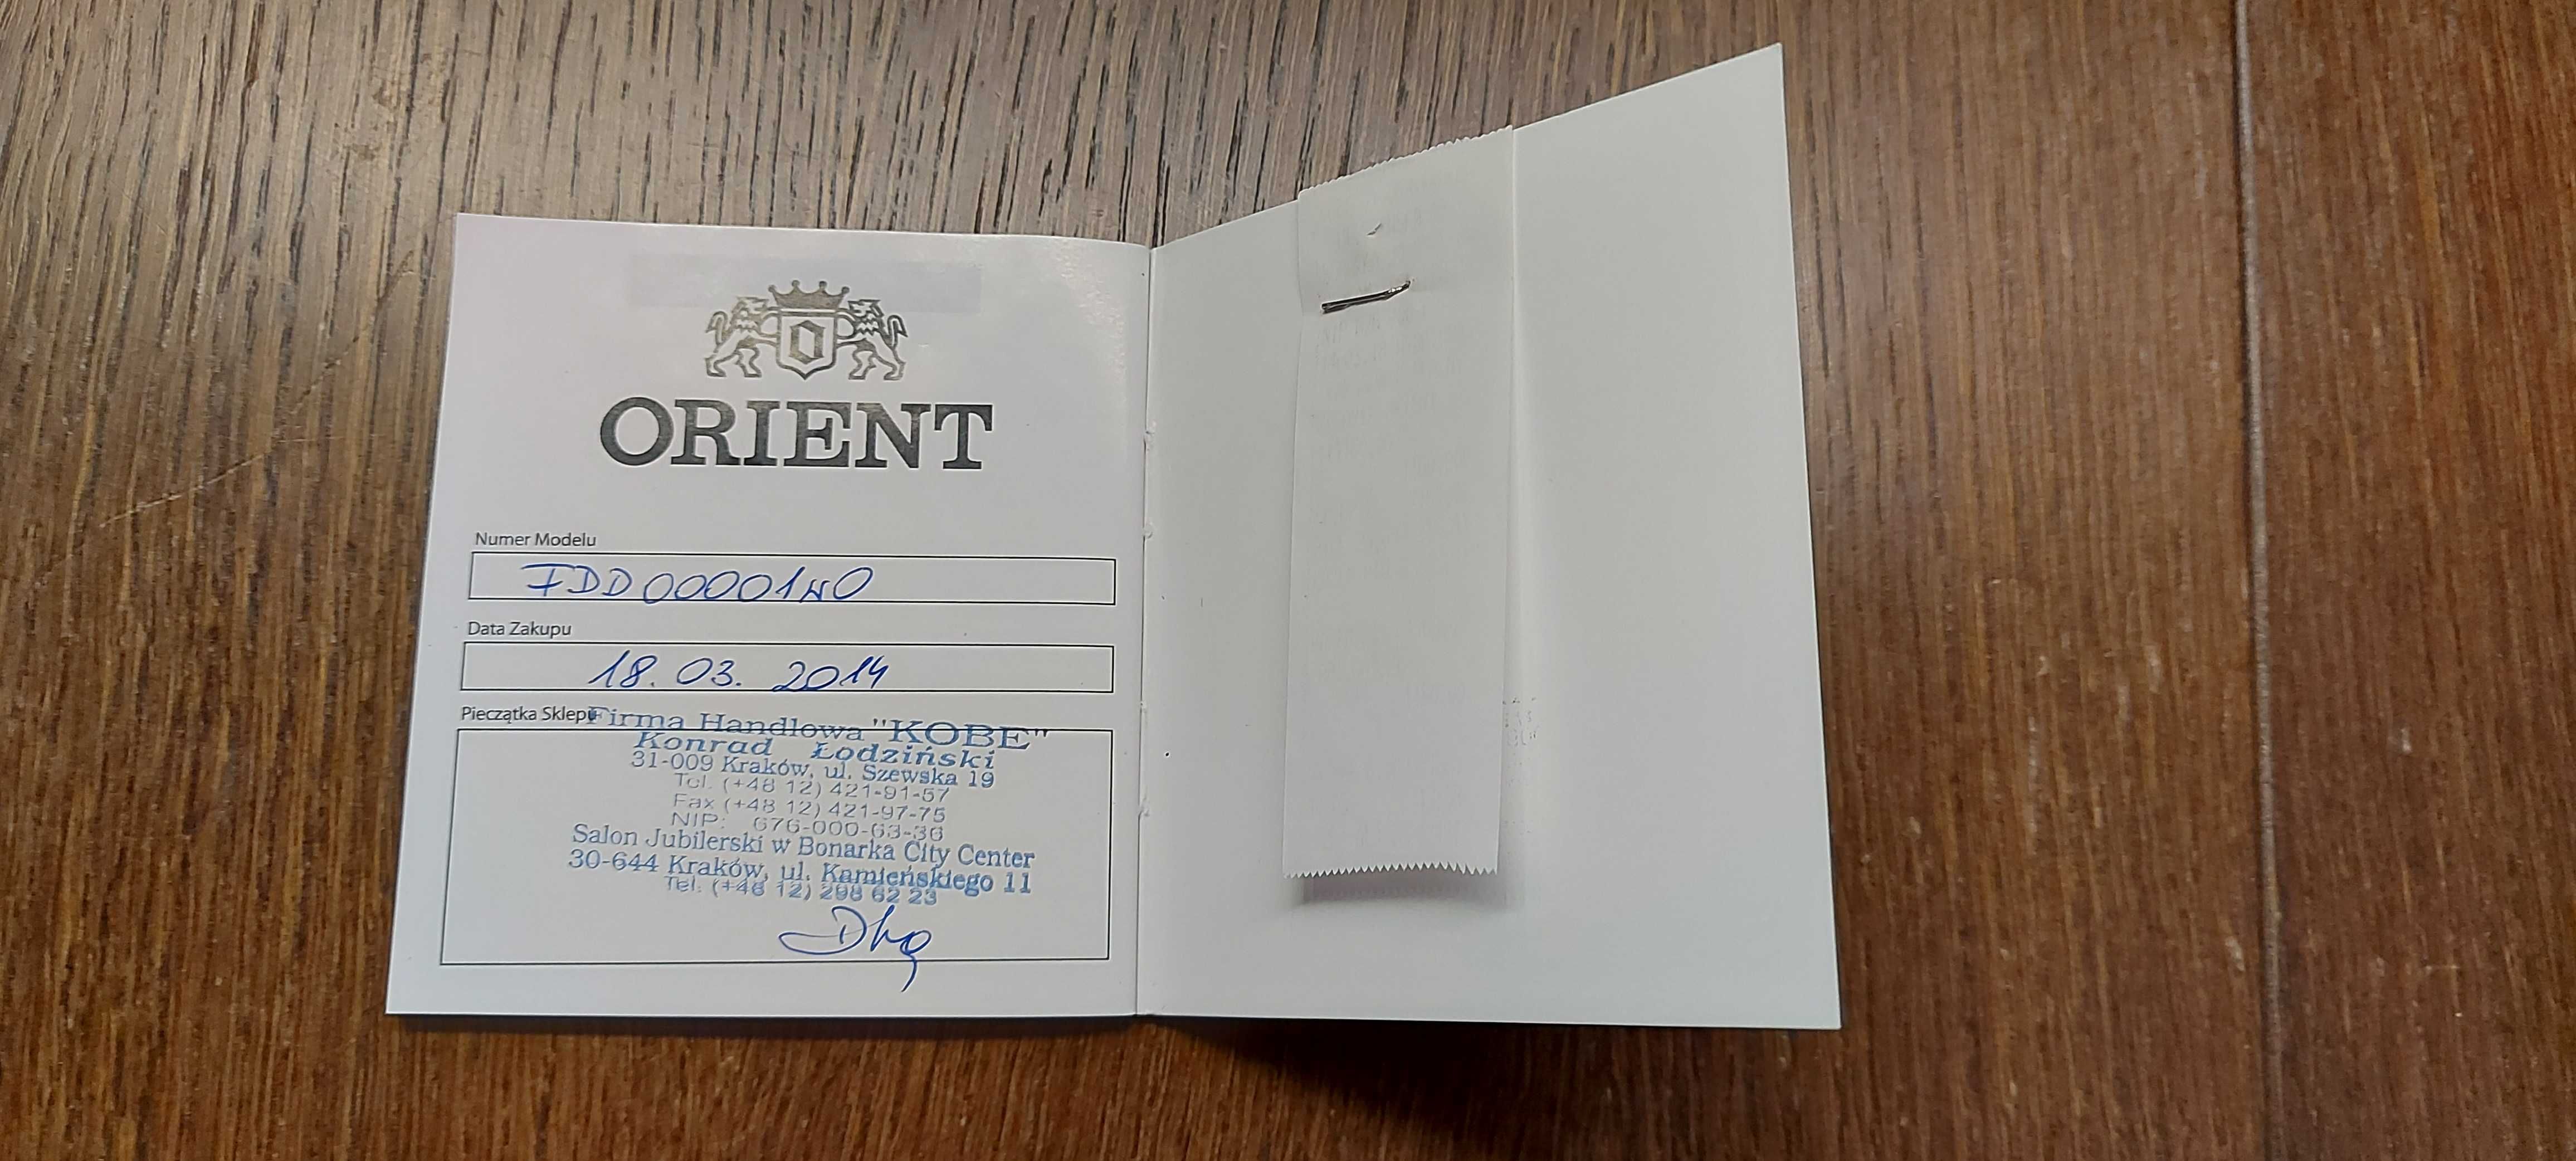 ORIENT
Numer Modelu
FDD00001W0
Data Zakupu
18. 03. 2014
Pieczątka Sklepu
Firma Handlowa "KOBE"
Konrad Łodziński
31-009 Kraków, ul. Szewska 19
Tel. (+48 12) 421-91-57
Fax (+48 12) 421-97-75
NIP: 676-000-63-36
Salon Jubilerski w Bonarka City Center
30-644 Kraków, ul. Kamieńskiego 11
Tel. (+48 12) 298 62 23